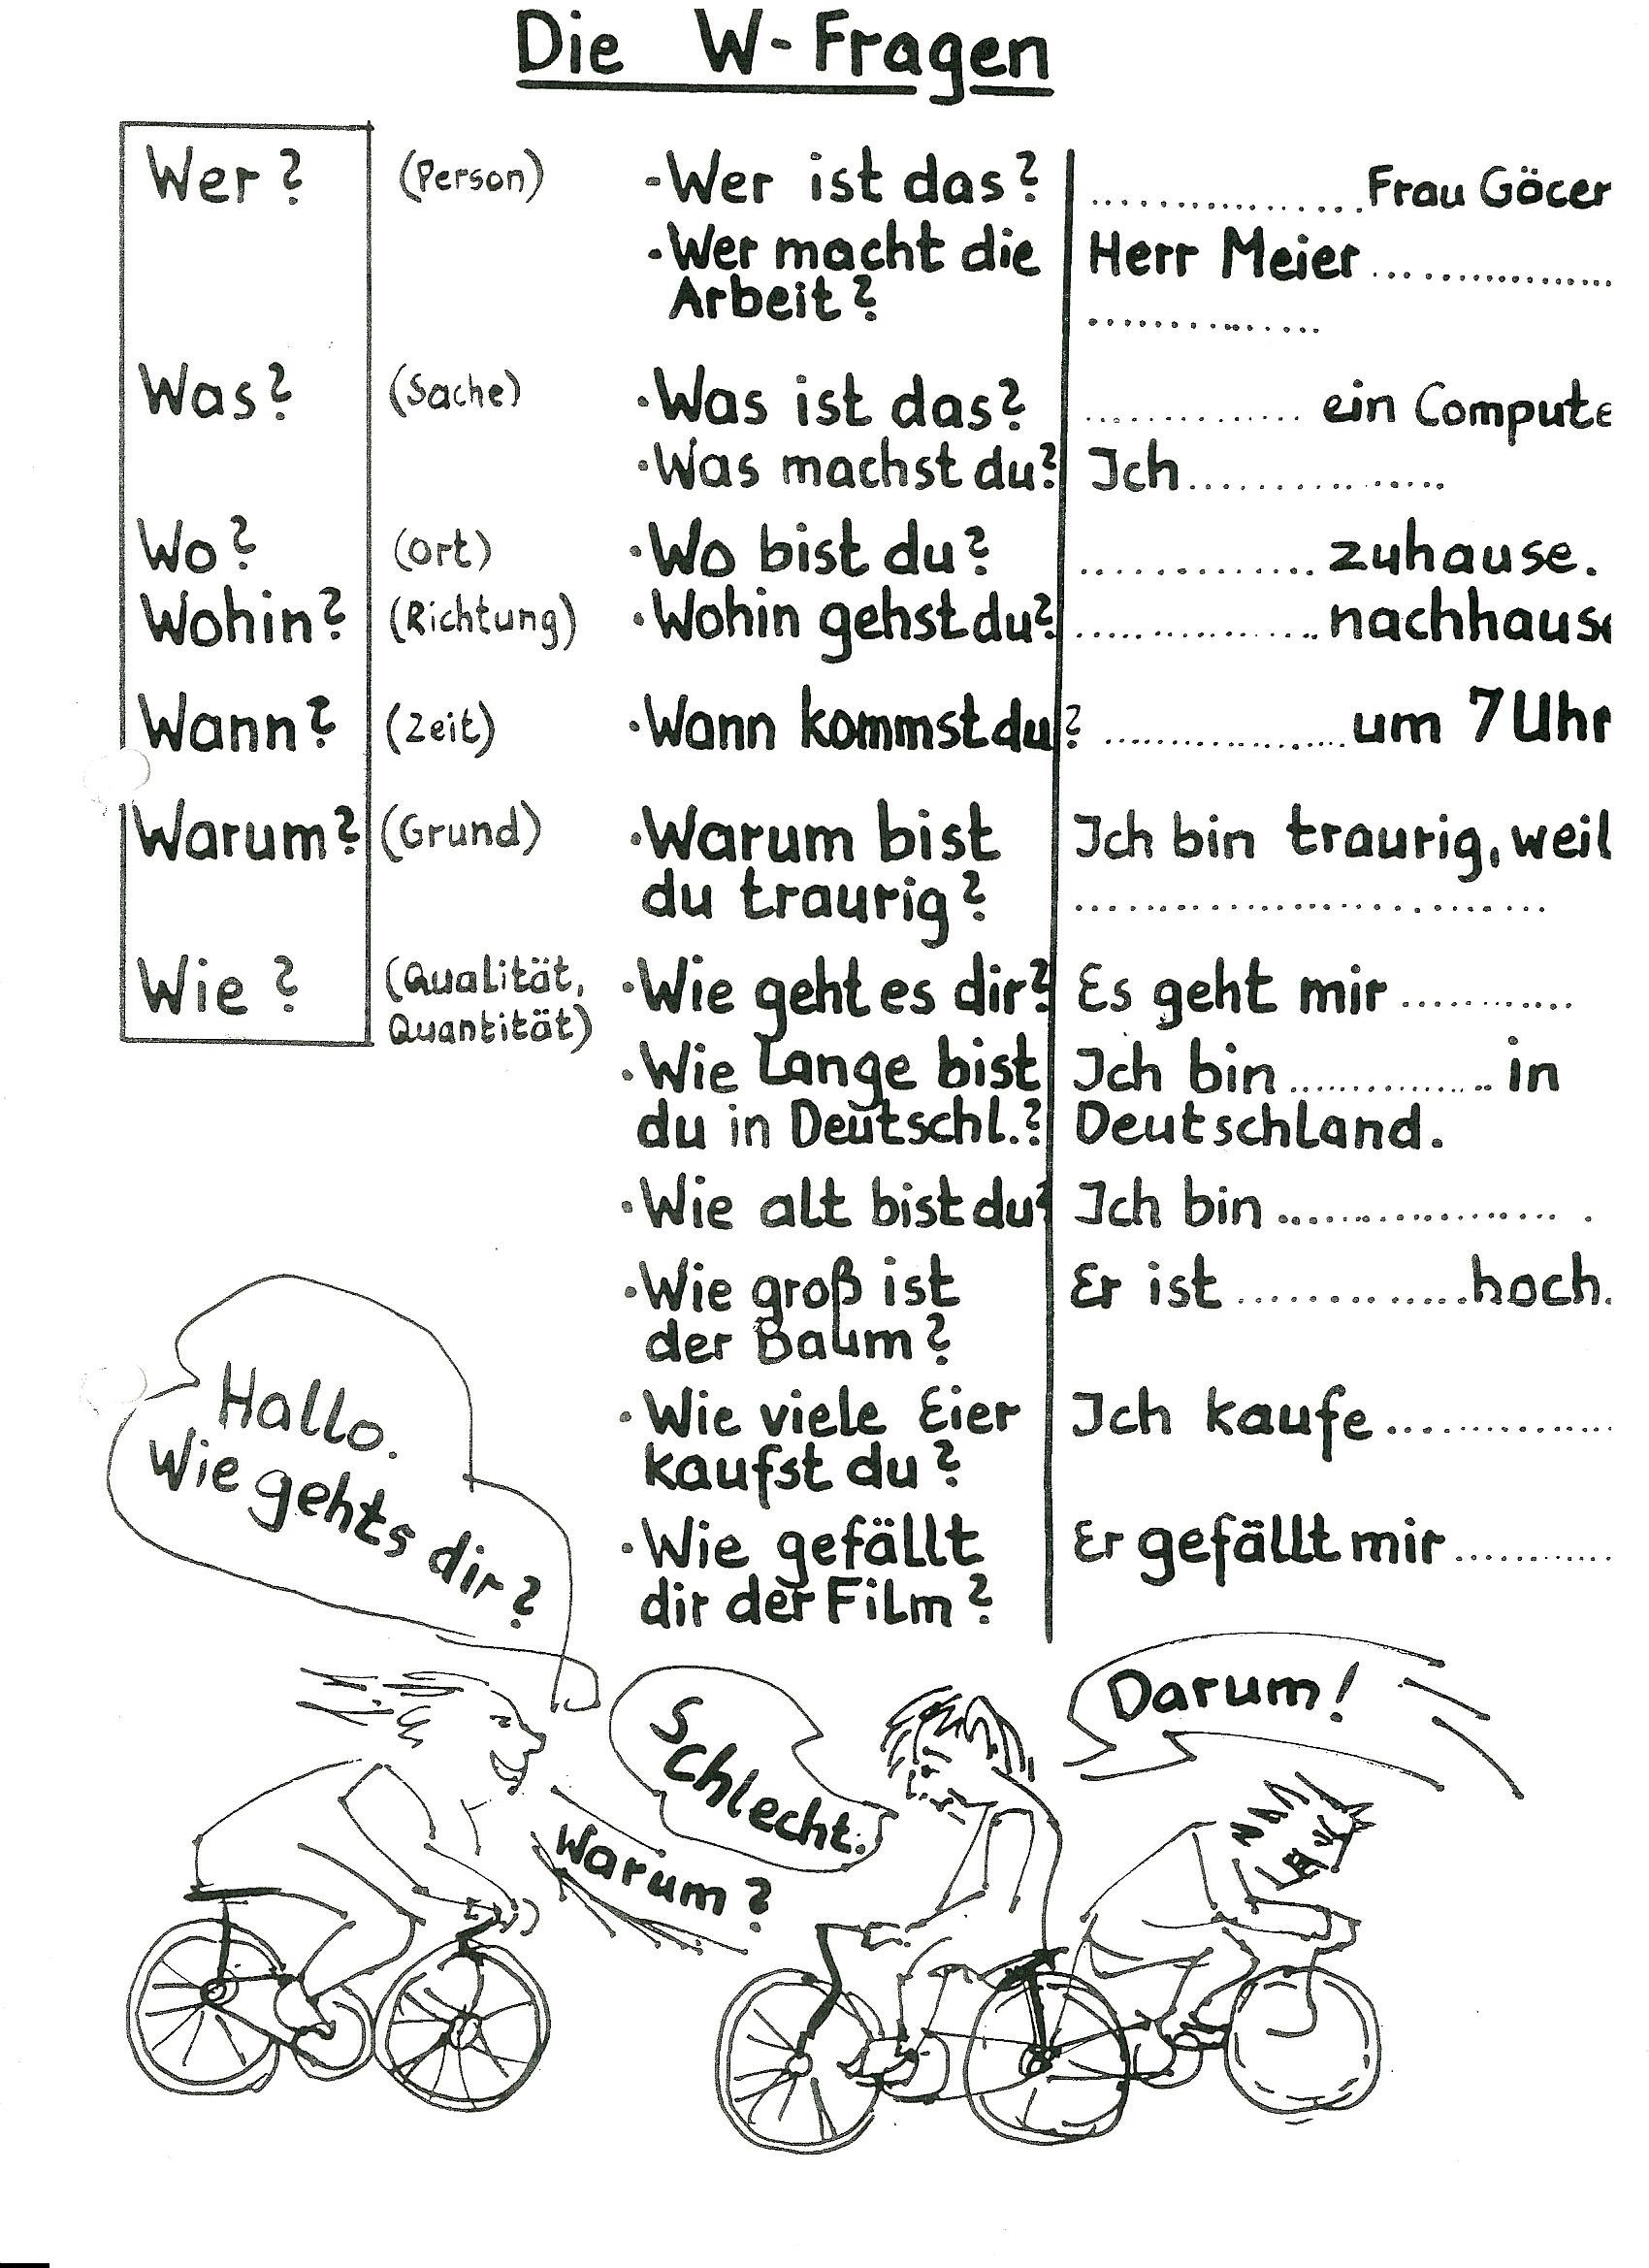 Die W-Fragen
Wer? (Person) -Wer ist das? .................Frau Göcer
·Wer macht die Herr Meier.................
Arbeit? ..............
Was? (Sache) ·Was ist das? .............. ein Compute
·Was machst du? Ich................
Wo? (Ort) ·Wo bist du? .............. zuhause.
Wohin? (Richtung) ·Wohin gehst du? ................nachhause
Wann? (Zeit) ·Wann kommst du? .................um 7 Uhr
Warum? (Grund) ·Warum bist Ich bin traurig, weil
du traurig? .............................
Wie? (Qualität, ·Wie geht es dir? Es geht mir ...........
Quantität)
·Wie lange bist Ich bin............... in
du in Deutschl.? Deutschland.
·Wie alt bist du? Ich bin .................. .
·Wie groß ist Er ist ...............hoch.
der Baum?
·Wie viele Eier Ich kaufe...............
kaufst du?
·Wie gefällt Er gefällt mir ...........
dir der Film?
Hallo.
Wie gehts dir?
Schlecht.
Warum?
Darum!